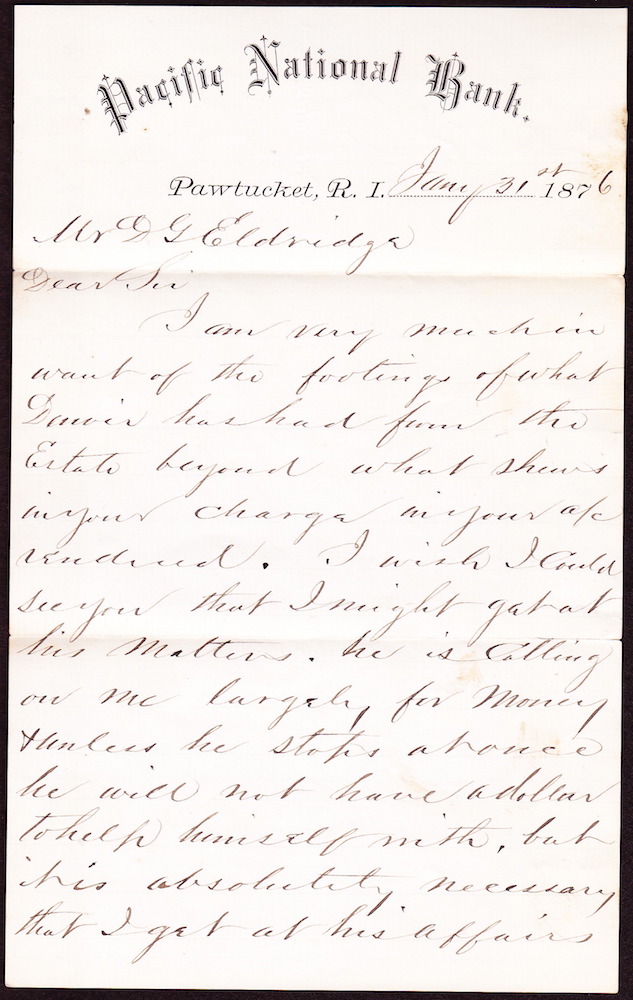 Pacific National Bank.
Pawtucket, R. I. Jany 31st 1876
Mr D G Eldridge
Dear Sir
I am very much in
want of the footings of what
has had from the
Estate beyond what shews
in your charge in your a/c
rendered. I wish I Could
see you that I might get at
his Matters. he is Calling
on me largely for Money
& unless he stops at once
he will not have a dollar
to help himself with, but
it is absolutely necessary
that I get at his affairs